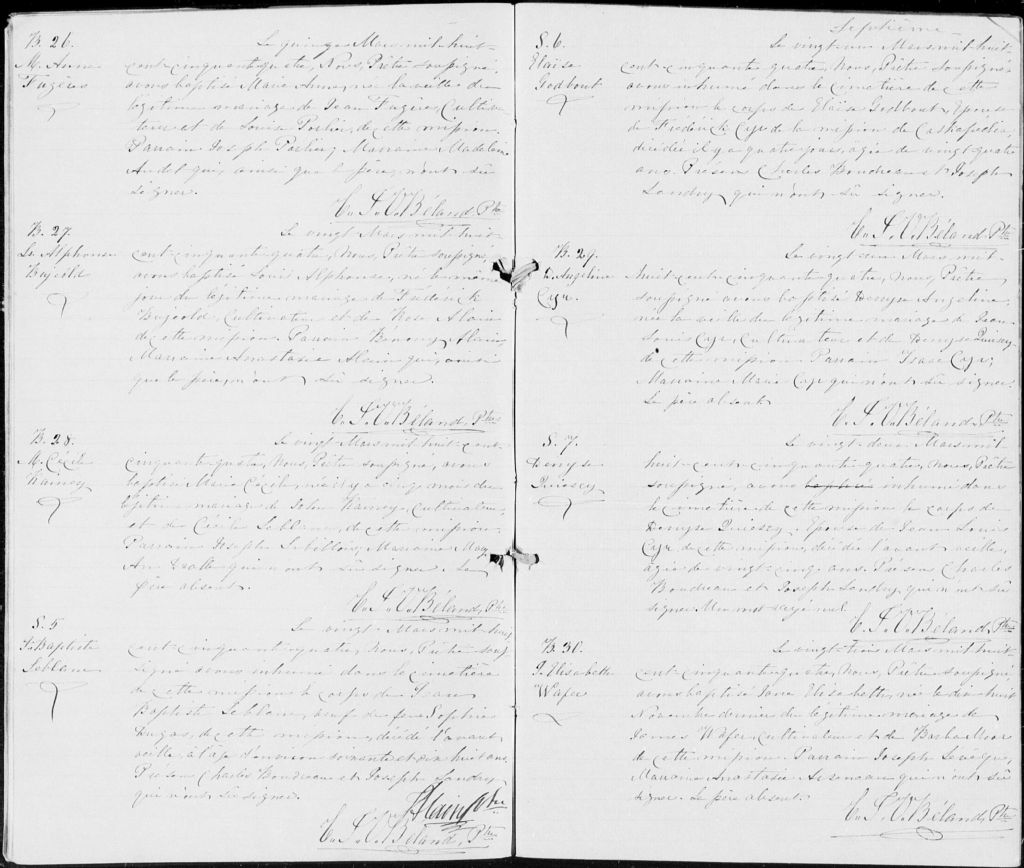 B. 26.
M. Anne
Fugère
Le quinze Mars mil huit-
cent-cinquante quatre, Nous, Prêtre soussigné,
avons baptisé Marie Anne, née la veille du
légitime mariage de Jean Fugère, Cultiva-
teur et de Louise Poirier, de cette mission.
Parrain Joseph Poirier; Marraine Madeleine
Audet qui, ainsi que le père, n'ont sû
signer.
C. S. O. Béland, Ptre
B. 27.
Ls. Alphonse
Bujold
Le vingt Mars mil huit
cent-cinquante quatre, Nous, Prêtre soussigné,
avons baptisé Louis Alphonse, né le même
jour du légitime mariage de Fréderick
Bujold, Cultivateur et de Rose Alain
de cette mission. Parrain Benony Alain,
Marraine Anastasie Alain qui, ainsi
que le père, n'ont sû signer.
C. S. O. Béland, Ptre
B. 28.
M. Cécile
Le vingt Mars mil huit-cent-
cinquante-quatre, Nous, Prêtre soussigné, avons
baptisé Marie Cécile, née il y a cinq mois du
légitime mariage de John Cultivateur
et de Cécile Leblanc, de cette mission.
Parrain Joseph Marraine
qui n'ont sû signer. Le
père absent.
C. S. O. Béland, Ptre
S. 5
J. Baptiste
Leblanc
Le vingt Mars mil huit
cent-cinquante quatre, Nous, Prêtre sous-
signé avons inhumé dans le cimetière
de cette mission le corps de Jean
Baptiste Leblanc, veuf de feue Sophie
Dugas, de cette mission, décédé l'avant
veille, à l'âge d'environ soixante et dix huit ans.
Présens Charles Boudreau et Joseph Landry
qui n'ont sû signer.
Alain Ptre
C. S. O. Béland, Ptre
Septième
S. 6.
Elaïse
Godbout
Le vingt un Mars mil huit-
cent cinquante quatre, Nous, Prêtre soussigné
avons inhumé dans le cimetière de cette
mission le corps de Elaïse Godbout, Epouse
de Fréderick Cyr de la mission de
décédée il y a quatre jours, âgée de vingt quatre
ans. Présens Charles Boudreau et Joseph
Landry qui n'ont sû signer.
C. S. O. Béland, Ptre
B. 29.
D. Angéline
Cyr.
Le vingt un Mars mil-
huit-cent cinquante quatre, Nous, Prêtre
soussigné avons baptisé Denyse Angéline,
née la veille du légitime mariage de Jean
Louis Cyr, Cultivateur et de Denyse Quiesey
de cette mission. Parrain Isaac Cyr;
Marraine Marie Cyr qui n'ont sû signer.
Le père absent.
C. S. O. Béland, Ptre
S. 7.
Denyse
Quiesey
Le vingt-deux Mars mil
huit-cent-cinquante quatre, Nous, Prêtre
soussigné, avons baptisé inhumé dans
le cimetière de cette mission le corps de
Denyse Quiesey, Epouse de Jean Louis
Cyr de cette mission, décédée l'avant veille,
âgée de vingt-cinq ans. Présens Charles
Boudreau et Joseph Landry, qui n'ont sû
signer. Un mot rayé nul.
C. S. O. Béland, Ptre
B. 30.
J. Elisabeth
Wafer
Le vingt trois Mars mil huit-
cent-cinquante quatre, Nous, Prêtre soussigné
avons baptisé Jane Elisabeth, née le dix huit
Novembre dernier du légitime mariage de
James Wafer, cultivateur et de
de cette mission. Parrain Joseph Lévèque,
Marraine Anastasie Arseneau qui n'ont sû
signer. Le père absent.
C. S. O. Béland, Ptre